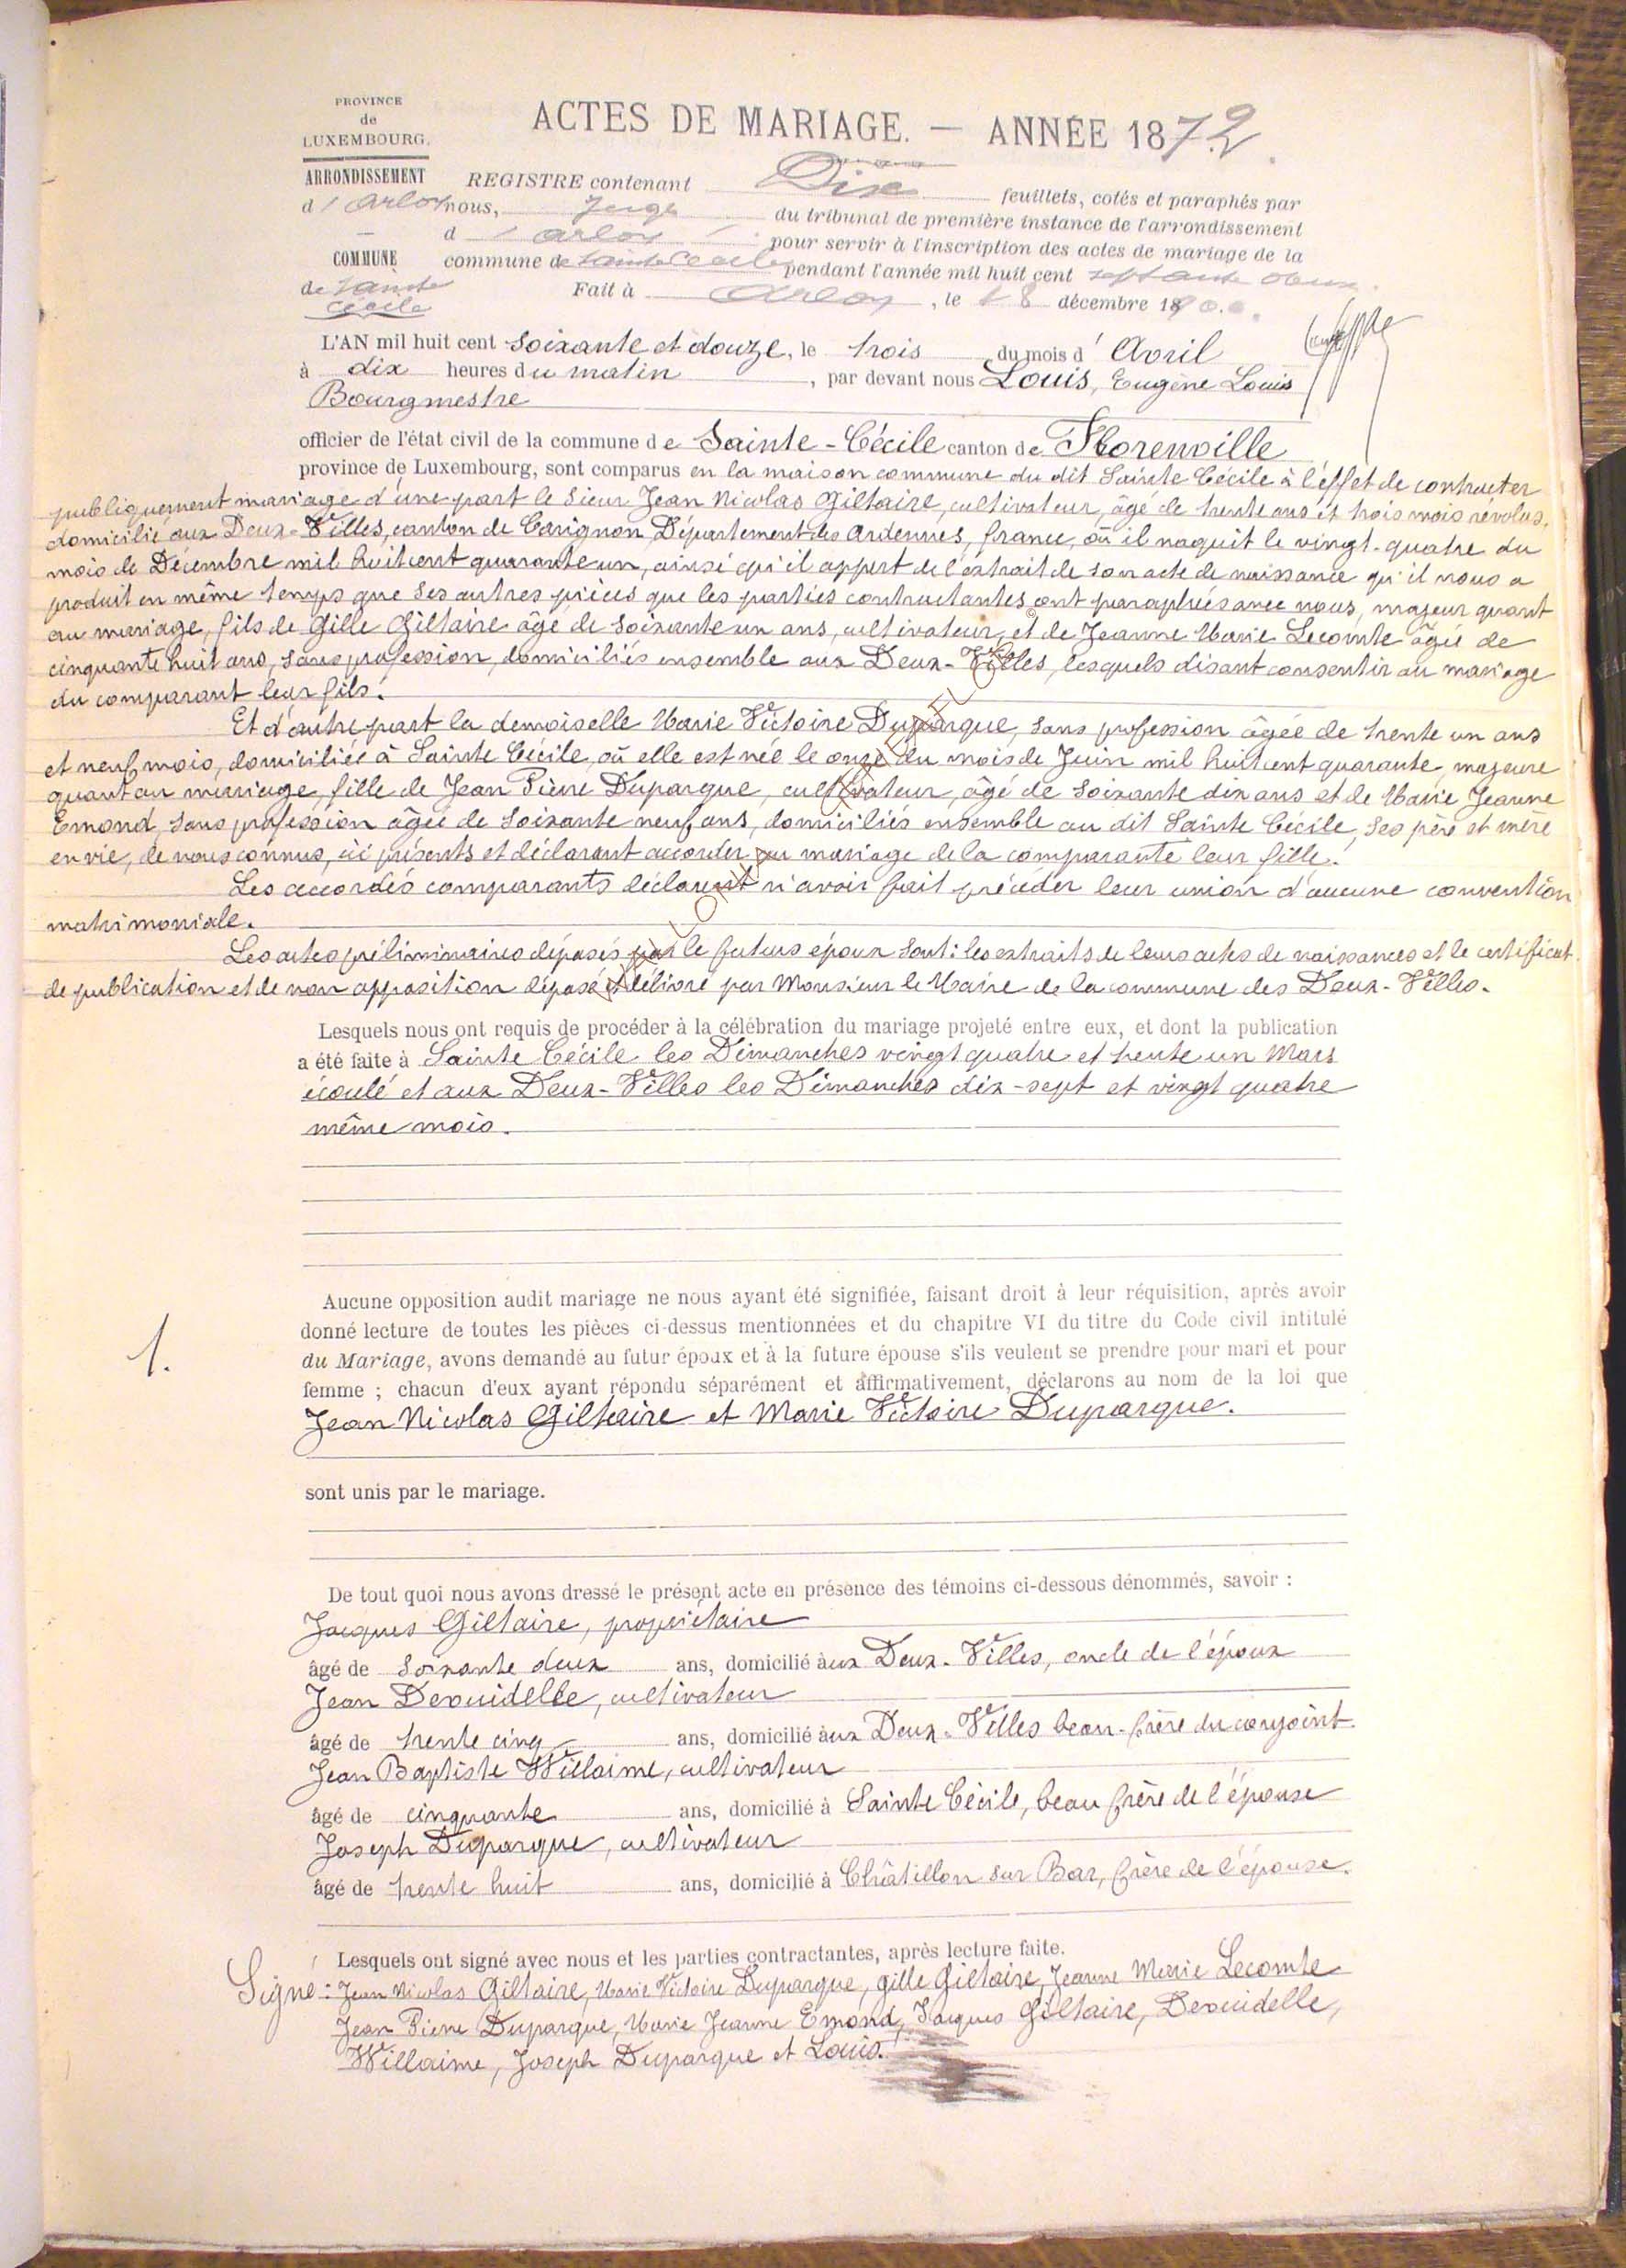 PROVINCE
de
LUXEMBOURG.
ACTES DE MARIAGE. — ANNÉE 1872.
ARRONDISSEMENT
d'Arlon
COMMUNE
de Sainte
Cécile
REGISTRE contenant Dix feuillets, cotés et paraphés par
nous, Juge du tribunal de première instance de l'arrondissement
d'Arlon pour servir à l'inscription des actes de mariage de la
commune de Sainte Cécile pendant l'année mil huit cent septante deux.
Fait à Arlon, le 18 décembre 1900.
L'AN mil huit cent soixante et douze, le trois du mois d'Avril
à dix heures du matin, par devant nous Louis, Eugène Louis
Bourgmestre
officier de l'état civil de la commune de Sainte-Cécile canton de Florenville
province de Luxembourg, sont comparus en la maison commune du dit Sainte Cécile à l'éffet de contracter
publiquement mariage d'une part le Sieur Jean Nicolas Giltaire, cultivateur, âgé de trente ans et trois mois révolus,
domicilié aux Deux-Villes, canton de Carignan, Département des Ardennes, france, où il naquit le vingt-quatre du
mois de Décembre mil huit cent quarante un, ainsi qu'il appert de l'extrait de son acte de naissance qu'il nous a
produit en même temps que ses autres pièces que les parties contractantes ont paraphées avec nous, majeur quant
au mariage, fils de Gille Giltaire âgé de soixante un ans, cultivateur, et de Jeanne Marie Lecomte âgée de
cinquante huit ans, sans profession, domiciliés ensemble aux Deux-Villes, lesquels disant consentir au mariage
du comparant leur fils.
Et d'autre part la demoiselle Marie Victoire Duparque, sans profession âgée de trente un ans
et neuf mois, domiciliée à Sainte Cécile, où elle est née le onze du mois de Juin mil huit cent quarante, majeure
quant au mariage, fille de Jean Pierre Duparque, cultivateur, âgé de soixante dix ans et de Marie Jeanne
Emond, sans profession âgée de soixante neuf ans, domiciliés ensemble au dit Sainte Cécile, ses père et mère
en vie, de nous connus, ici présents et déclarant accorder au mariage de la comparante leur fille.
Les accordés comparants déclarent n'avoir fait précéder leur union d'aucune convention
matrimoniale.
Les actes préliminaires déposés par le futurs époux sont: les extraits de leurs actes de naissances et le certificat
de publication et de non opposition déposé et délivré par Monsieur le Maire de la commune des Deux-Villes.
Lesquels nous ont requis de procéder à la célébration du mariage projeté entre eux, et dont la publication
a été faite à Sainte Cécile les Dimanches vingt quatre et trente un Mars
écoulé et aux Deux-Villes les Dimanches dix-sept et vingt quatre
même mois.
Aucune opposition audit mariage ne nous ayant été signifiée, faisant droit à leur réquisition, après avoir
donné lecture de toutes les pièces ci-dessus mentionnées et du chapitre VI du titre du Code civil intitulé
1.
du Mariage, avons demandé au futur époux et à la future épouse s'ils veulent se prendre pour mari et pour
femme ; chacun d'eux ayant répondu séparément et affirmativement, déclarons au nom de la loi que
Jean Nicolas Giltaire et Marie Victoire Duparque.
sont unis par le mariage.
De tout quoi nous avons dressé le présent acte en présence des témoins ci-dessous dénommés, savoir :
Jacques Giltaire, propriétaire
âgé de soixante deux ans, domicilié aux Deux-Villes, oncle de l'époux
Jean Devuidelle, cultivateur
âgé de trente cinq ans, domicilié aux Deux-Villes beau-frère du conjoint.
Jean Baptiste Willaime, cultivateur
âgé de cinquante ans, domicilié à Sainte Cécile, beau frère de l'épouse
Joseph Duparque, cultivateur
âgé de trente huit ans, domicilié à Châtillon sur Bar, frère de l'épouse.
Lesquels ont signé avec nous et les parties contractantes, après lecture faite.
Signé : Jean Nicolas Giltaire, Marie Victoire Duparque, Gille Giltaire, Jeanne Marie Lecomte
Jean Pierre Duparque, Marie Jeanne Emond, Jacques Giltaire, Devuidelle,
Willaime, Joseph Duparque et Louis.